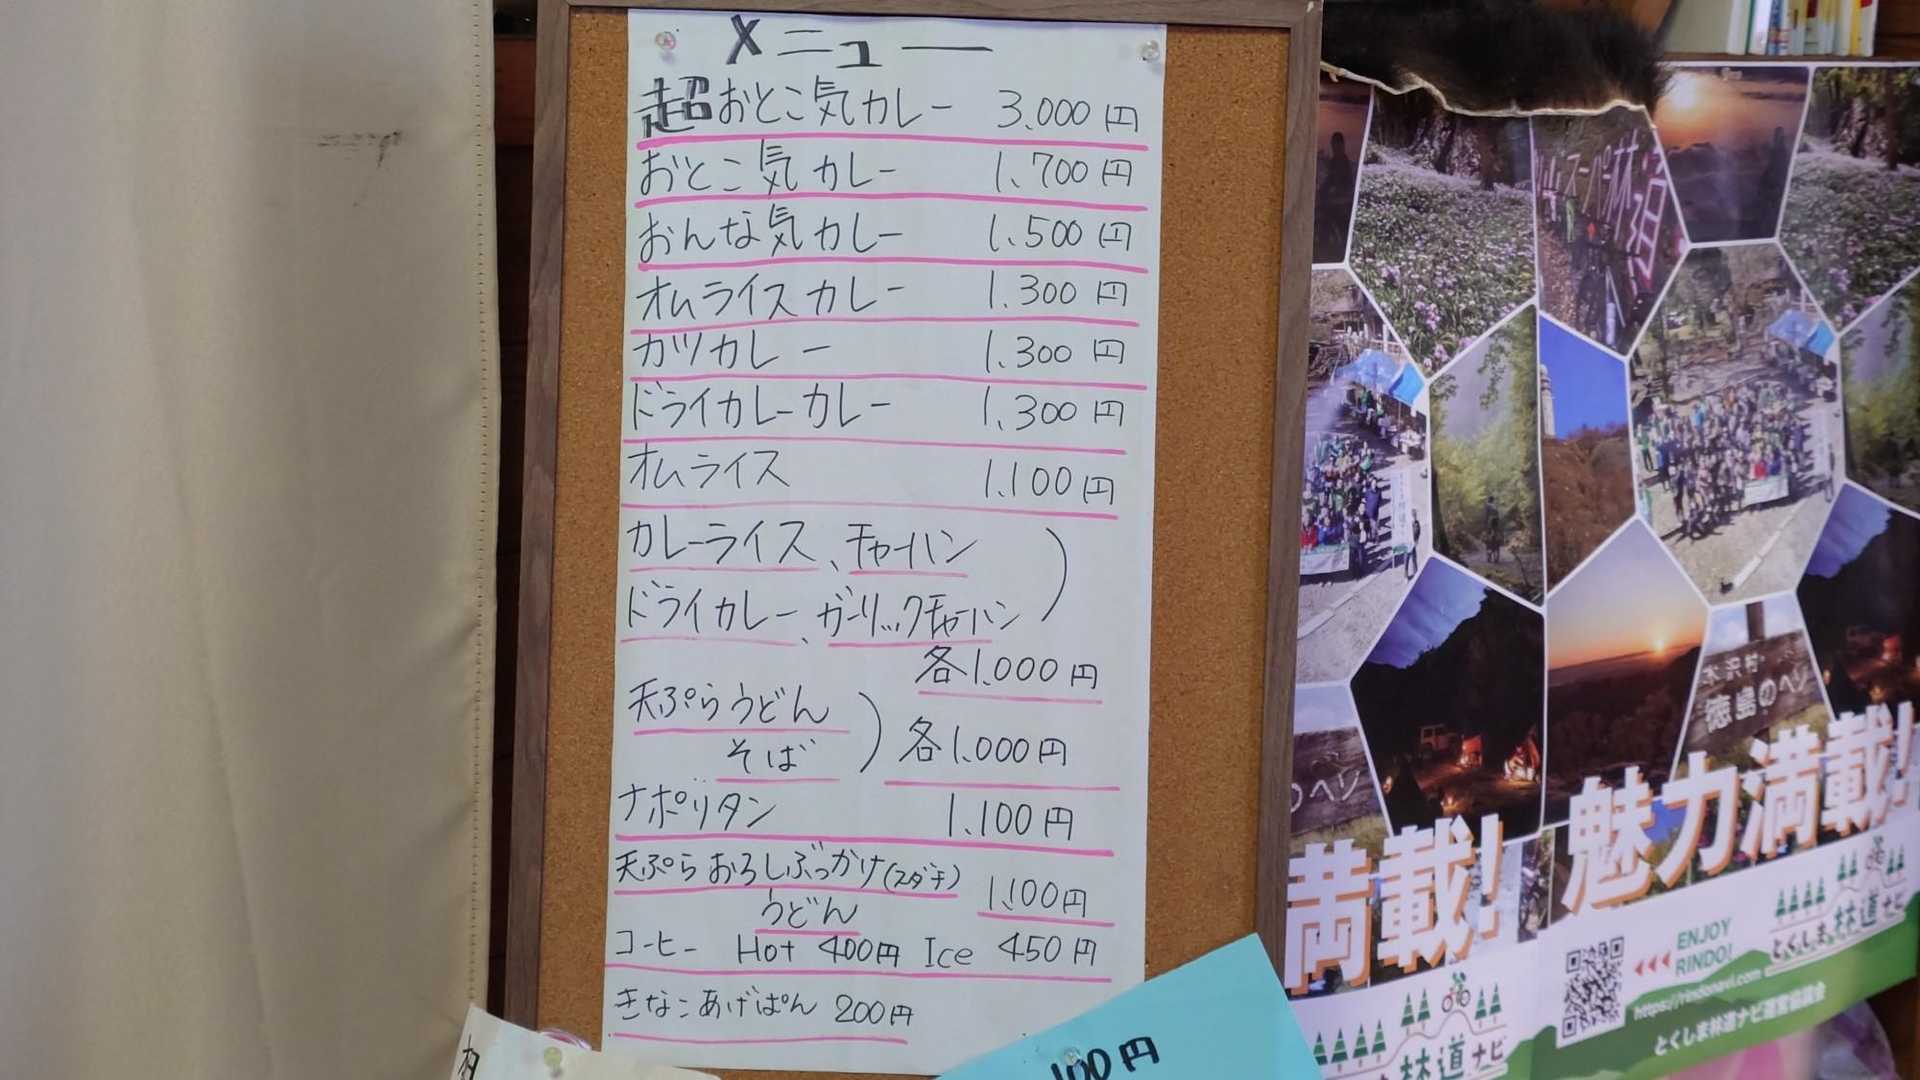 メニュー
超おとこ気カレー 3.000円
おとこ気カレー 1.700円
おんな気カレー 1.500円
オムライスカレー 1.300円
カツカレー 1.300円
ドライカレーカレー 1.300円
オムライス 1.100円
カレーライス、チャーハン
ドライカレー、ガーリックチャーハン
各1.000円
天ぷらうどん
そば
各1.000円
ナポリタン 1.100円
天ぷらおろしぶっかけ(スダチ)
うどん 1.100円
コーヒー Hot 400円 Ice 450円
きなこあげぱん 200円
100円
スーパー林道
木沢村
徳島のヘソ
のヘソ
満載!
魅力満載!
とくしま林道ナビ
ENJOY
RINDO!
https://rindonavi.com
とくしま林道ナビ運営協議会
林道ナビ